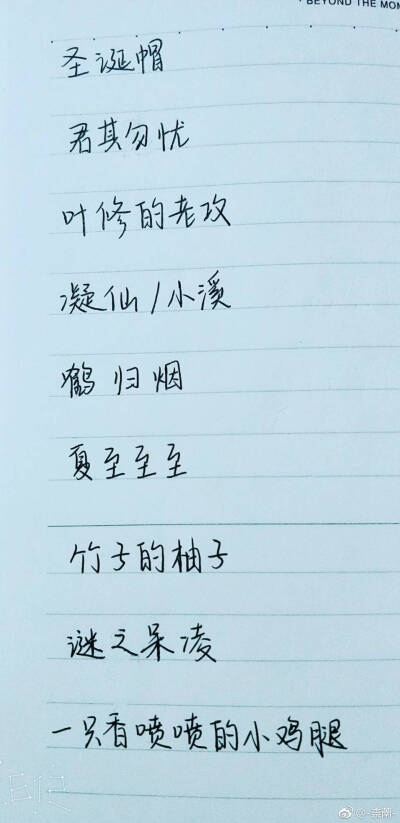 BEYOND THE MOM
圣诞帽
君其勿忧
叶修的老攻
凝仙/小溪
鹤归烟
夏至至至
竹子的柚子
谜之呆凌
一只香喷喷的小鸡腿